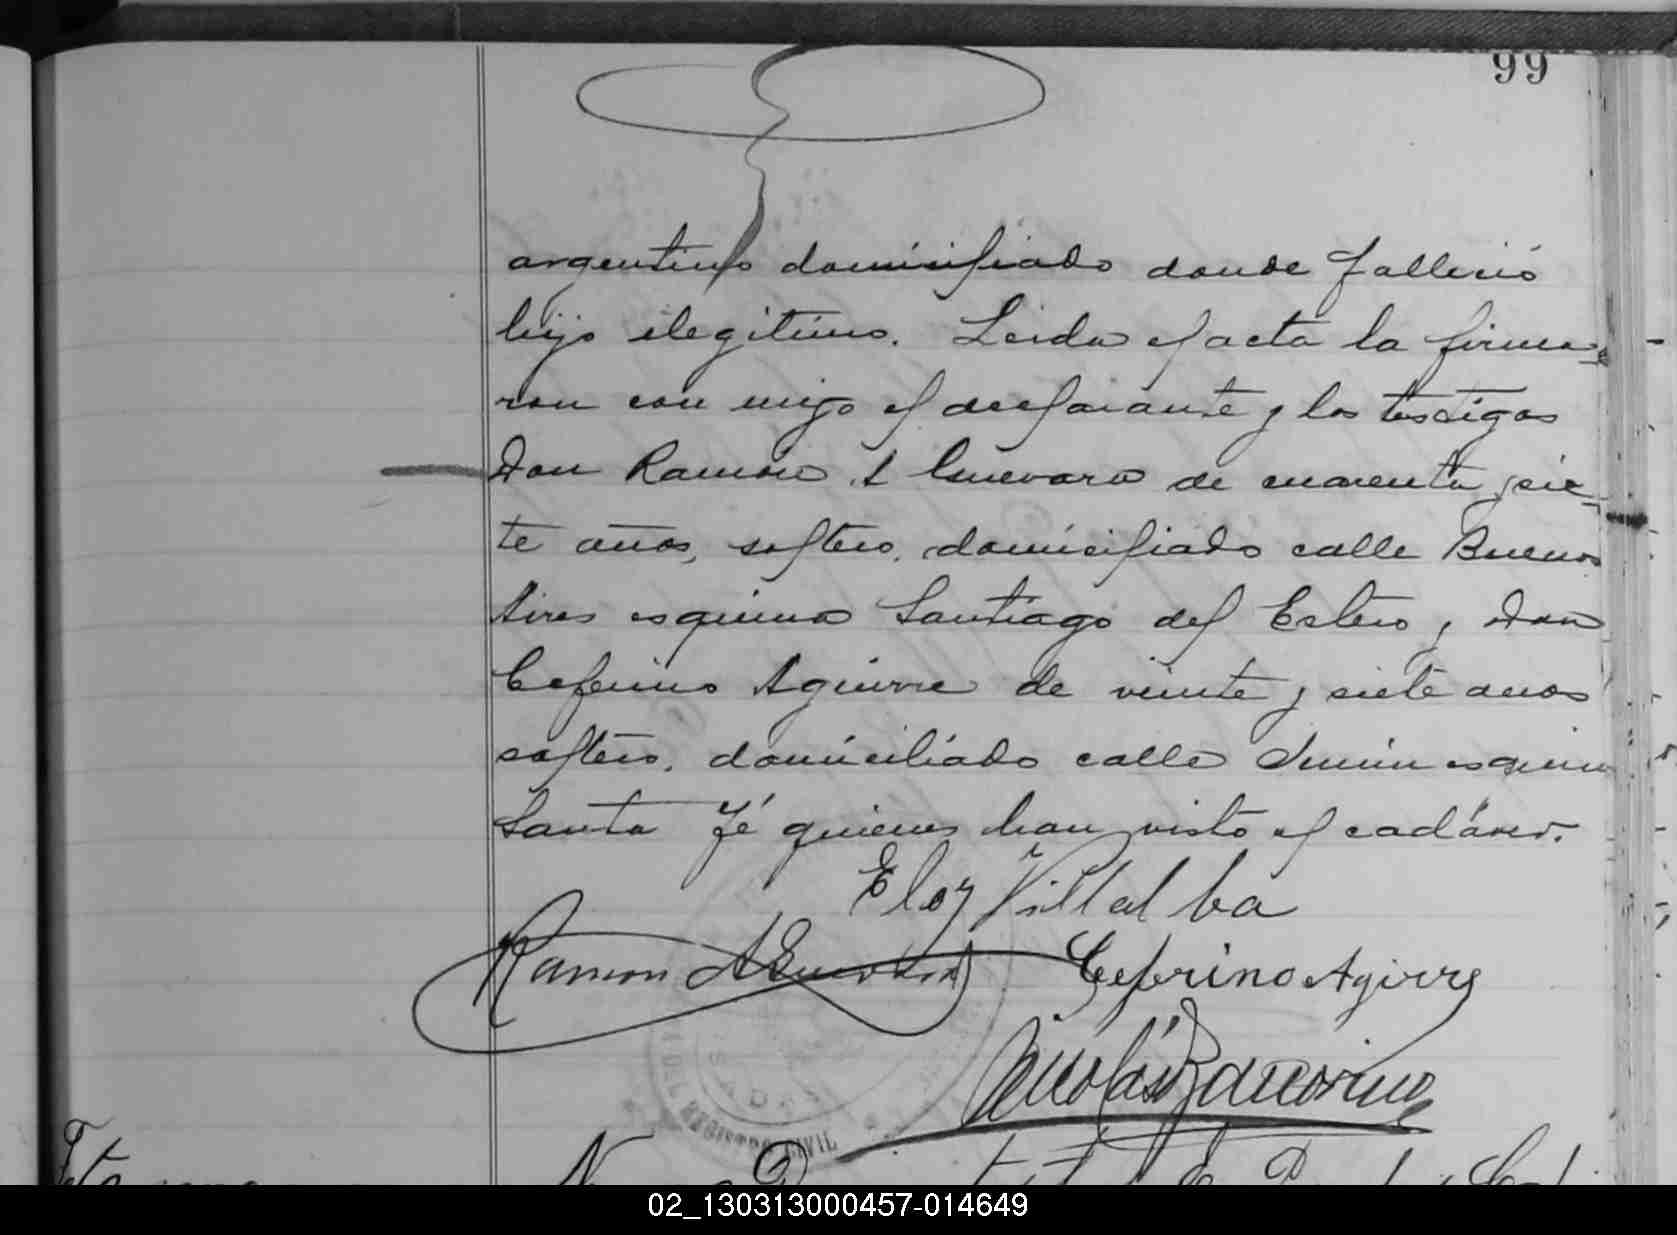 99
argentino domicifiado donde falleció
hijo ilegitimo. Leida el acta la firma-
ron con migo el declarante y los testigos
Don Ramon A Guevara de cuarenta y sie-
te años, soltero, domiciliado calle Buenos
Aires esquina Santiago del Estero y Don
Ceferino Aguirre de veinte y siete anos
soltero, domiciliado calle Junin esquina
Santa Fé quienes han visto el cadáver.
Eloy Villalba
Ramon A Guevara Ceferino Agirre
Nicolás
REGISTRO CIVIL
02_130313000457-014649